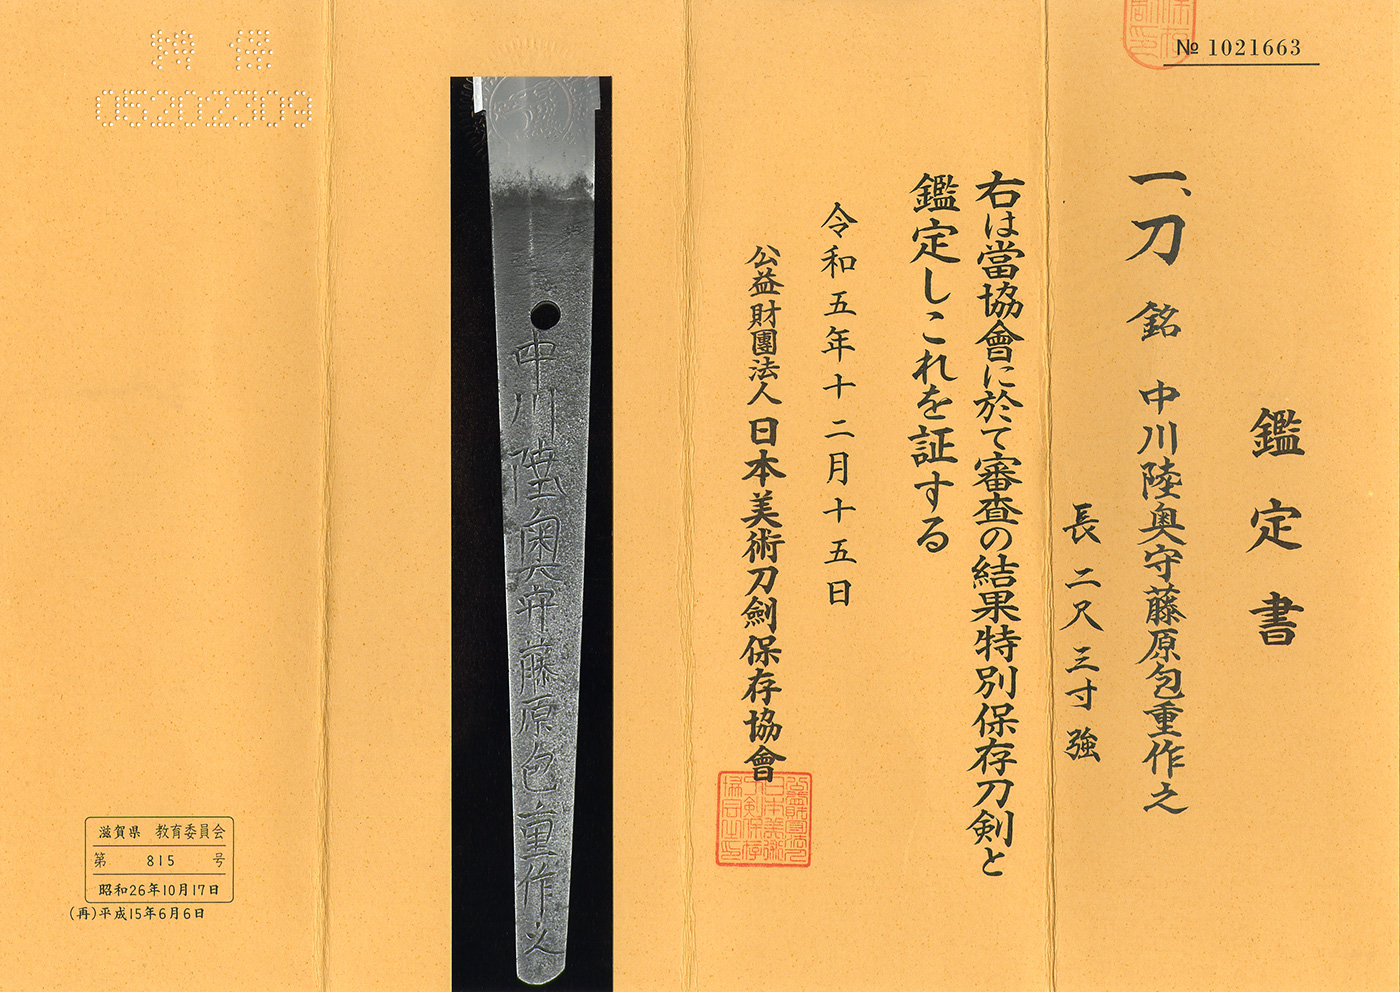 № 1021663
鑑定書
一、刀 銘 中川陸奥守藤原包重作之
長 二尺三寸強
右は當協會に於て審査の結果特別保存刀剣と
鑑定しこれを証する
令和五年十二月十五日
公益財團法人 日本美術刀劍保存協會
中川陸奥守藤原包重作之
05202309
滋賀県 教育委員会
第 815 号
昭和26年10月17日
(再)平成15年6月6日